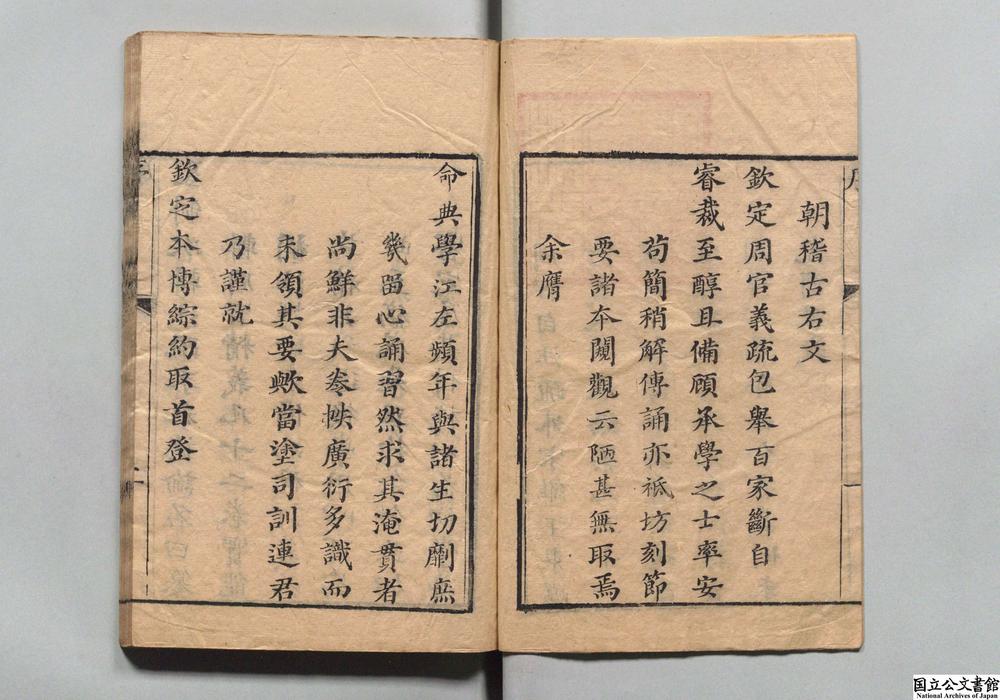 朝稽古右文
欽定周官義疏包舉百家斷自
睿裁至醇且備顧承學之士率安
苟簡稍解傳誦亦祗坊刻節
要諸本閱觀云陋甚無取焉
余膺
命典學江左頻年與諸生切劘庶
幾留心誦習然求其淹貫者
尚鮮非夫卷帙廣衍多識而
未領其要歟當塗司訓連君
乃謹就
欽定本博綜約取首登
国立公文書館
National Archives of Japan